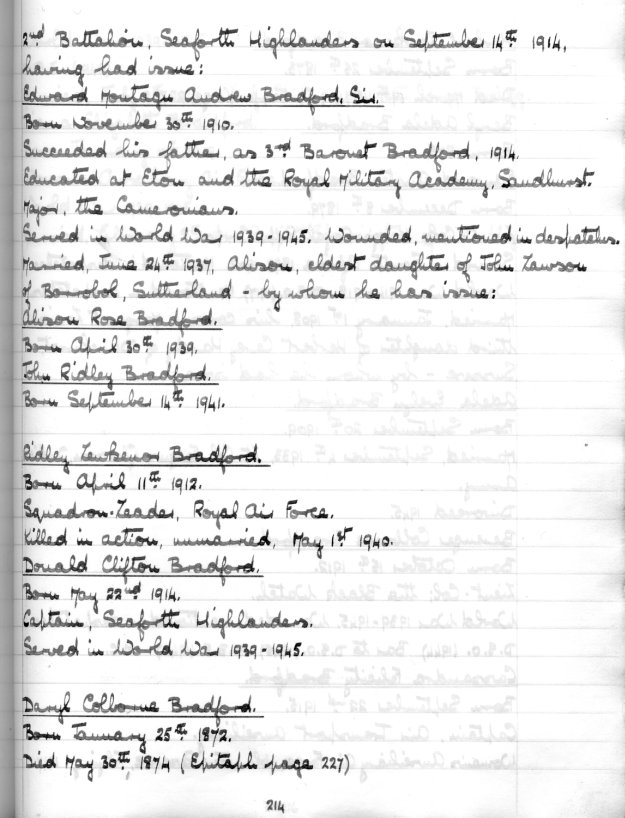 2nd Battalion, Seaforth Highlanders on September 14th 1914,
having had issue:
Edward Montagu Andrew Bradford, Sir.
Born November 30th 1910.
Succeeded his father, as 3rd Baronet Bradford, 1914.
Educated at Eton and the Royal Military Academy, Sandhurst.
Major, the Cameronians.
Served in World War 1939-1945. Wounded, mentioned in despatches.
Married, June 24th 1937, Alison, eldest daughter of John Lawson
of Borrobol, Sutherland - by whom he has issue:
Alison Rose Bradford.
Born April 30th 1939.
John Ridley Bradford.
Born September 14th 1941.
Ridley Lewkenor Bradford.
Born April 11th 1912.
Squadron-Leader, Royal Air Force.
Killed in action, unmarried, May 1st 1940.
Donald Clifton Bradford.
Born May 22nd 1914.
Captain, Seaforth Highlanders.
Served in World War 1939-1945.
Daryl Colborne Bradford.
Born January 25th 1872.
Died May 30th, 1874 (Epitaph page 227)
214